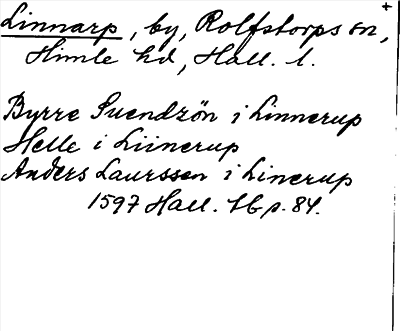 Linnarp, by, Rolfstorps sn,
Himle hd, Hall. l.
Byrre Suendzön i Linnerup
Helle i Liinerup
Anders Laurssen i Linerup
1597 Hall. tb p. 84.